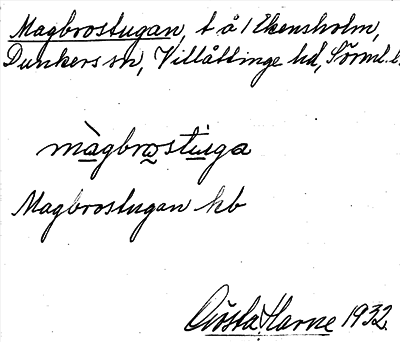 Magbrostugan, t å 1 Ekensholm,
Dunkers sn, Villåttinge hd, Sörml. l.
màgbrostuga
Magbrostugan kb
Gösta Harne 1932.